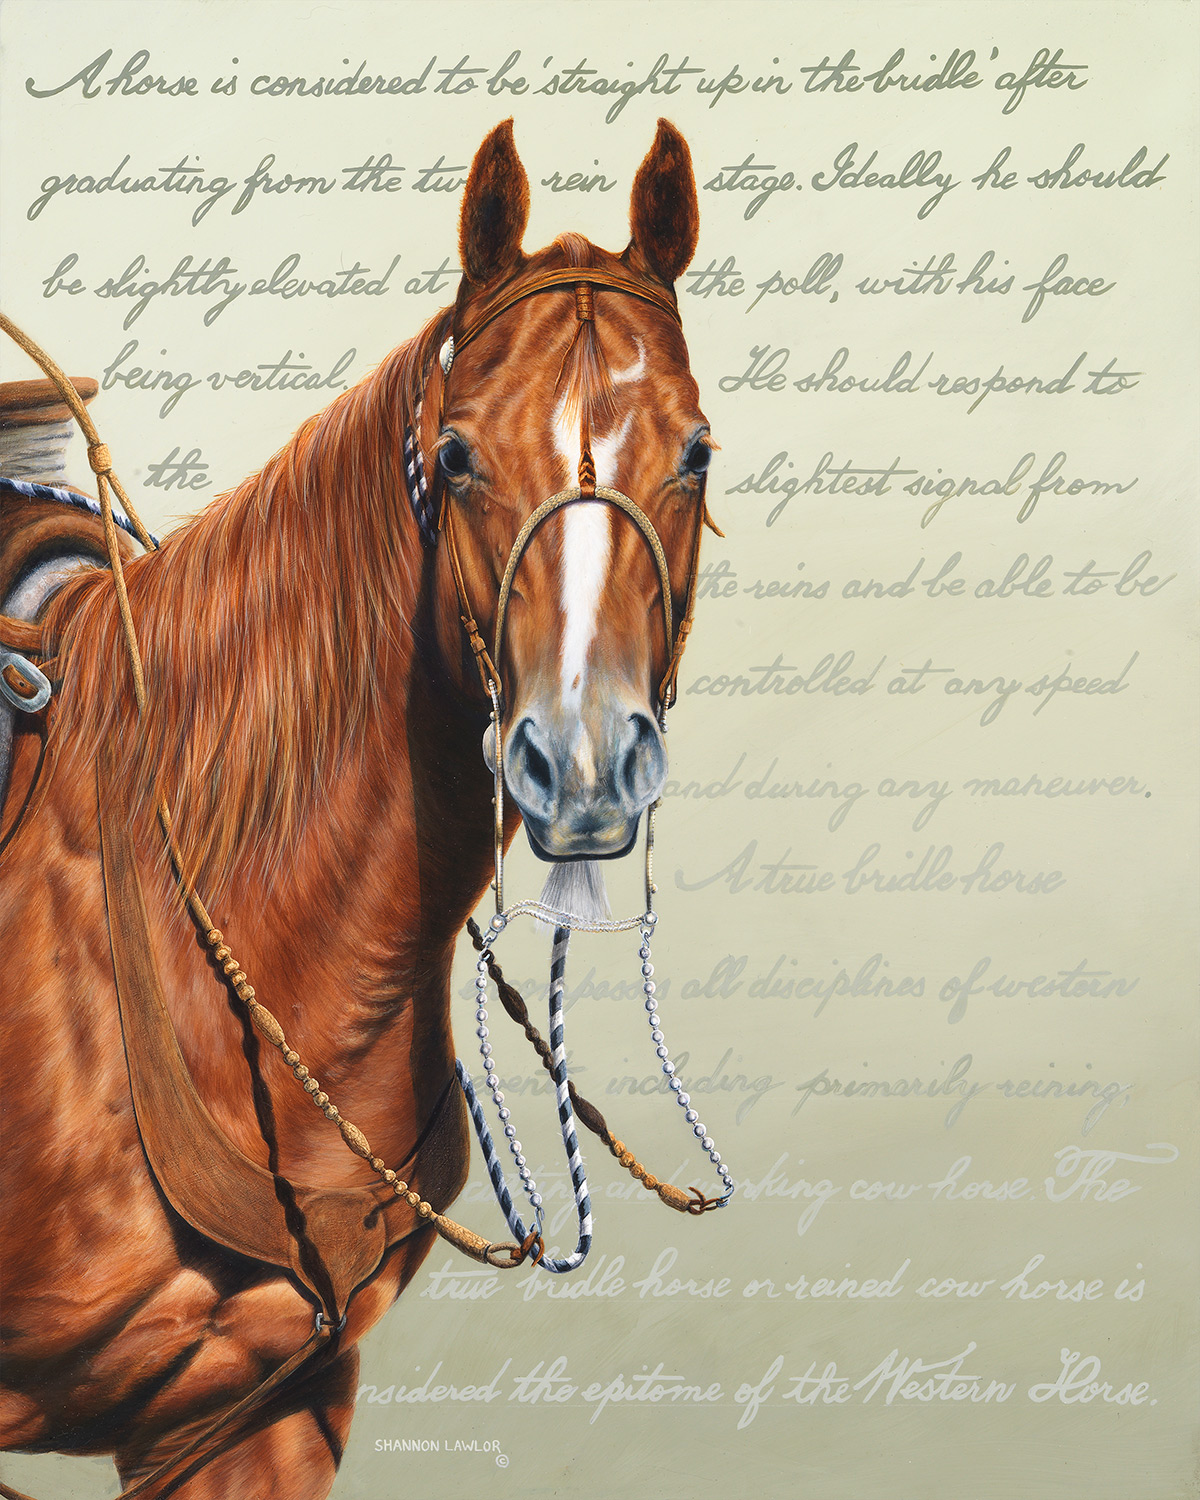 A horse is considered to be 'straight up in the bridle' after
graduating from the tw rein stage. Ideally he should
be slightly elevated at the poll, with his face
being vertical. He should respond to
the slightest signal from
the reins and be able to be
controlled at any speed
and during any maneuver.
A true bridle horse
encompasses all disciplines of western
events including primarily reining,
cutting and working cow horse. The
true bridle horse or reined cow horse is
nsidered the epitome of the Western Horse.
SHANNON LAWLOR
©